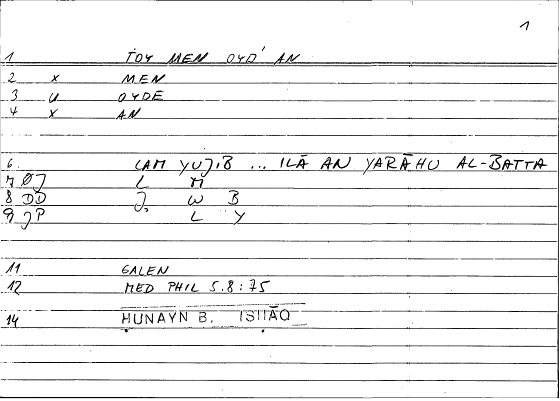 1
1 TOY MEN OYD' AN
2 x MEN
3 u OYDE
4 x AN
6. LAM YUǦIB ... ILĀ AN YARĀHU AL-BATTA
7 ØJ L M
8 DD J, W B
9 JP L Y
11 GALEN
12 MED PHIL 5.8:75
14 ḤUNAYN B. ISḤĀQ